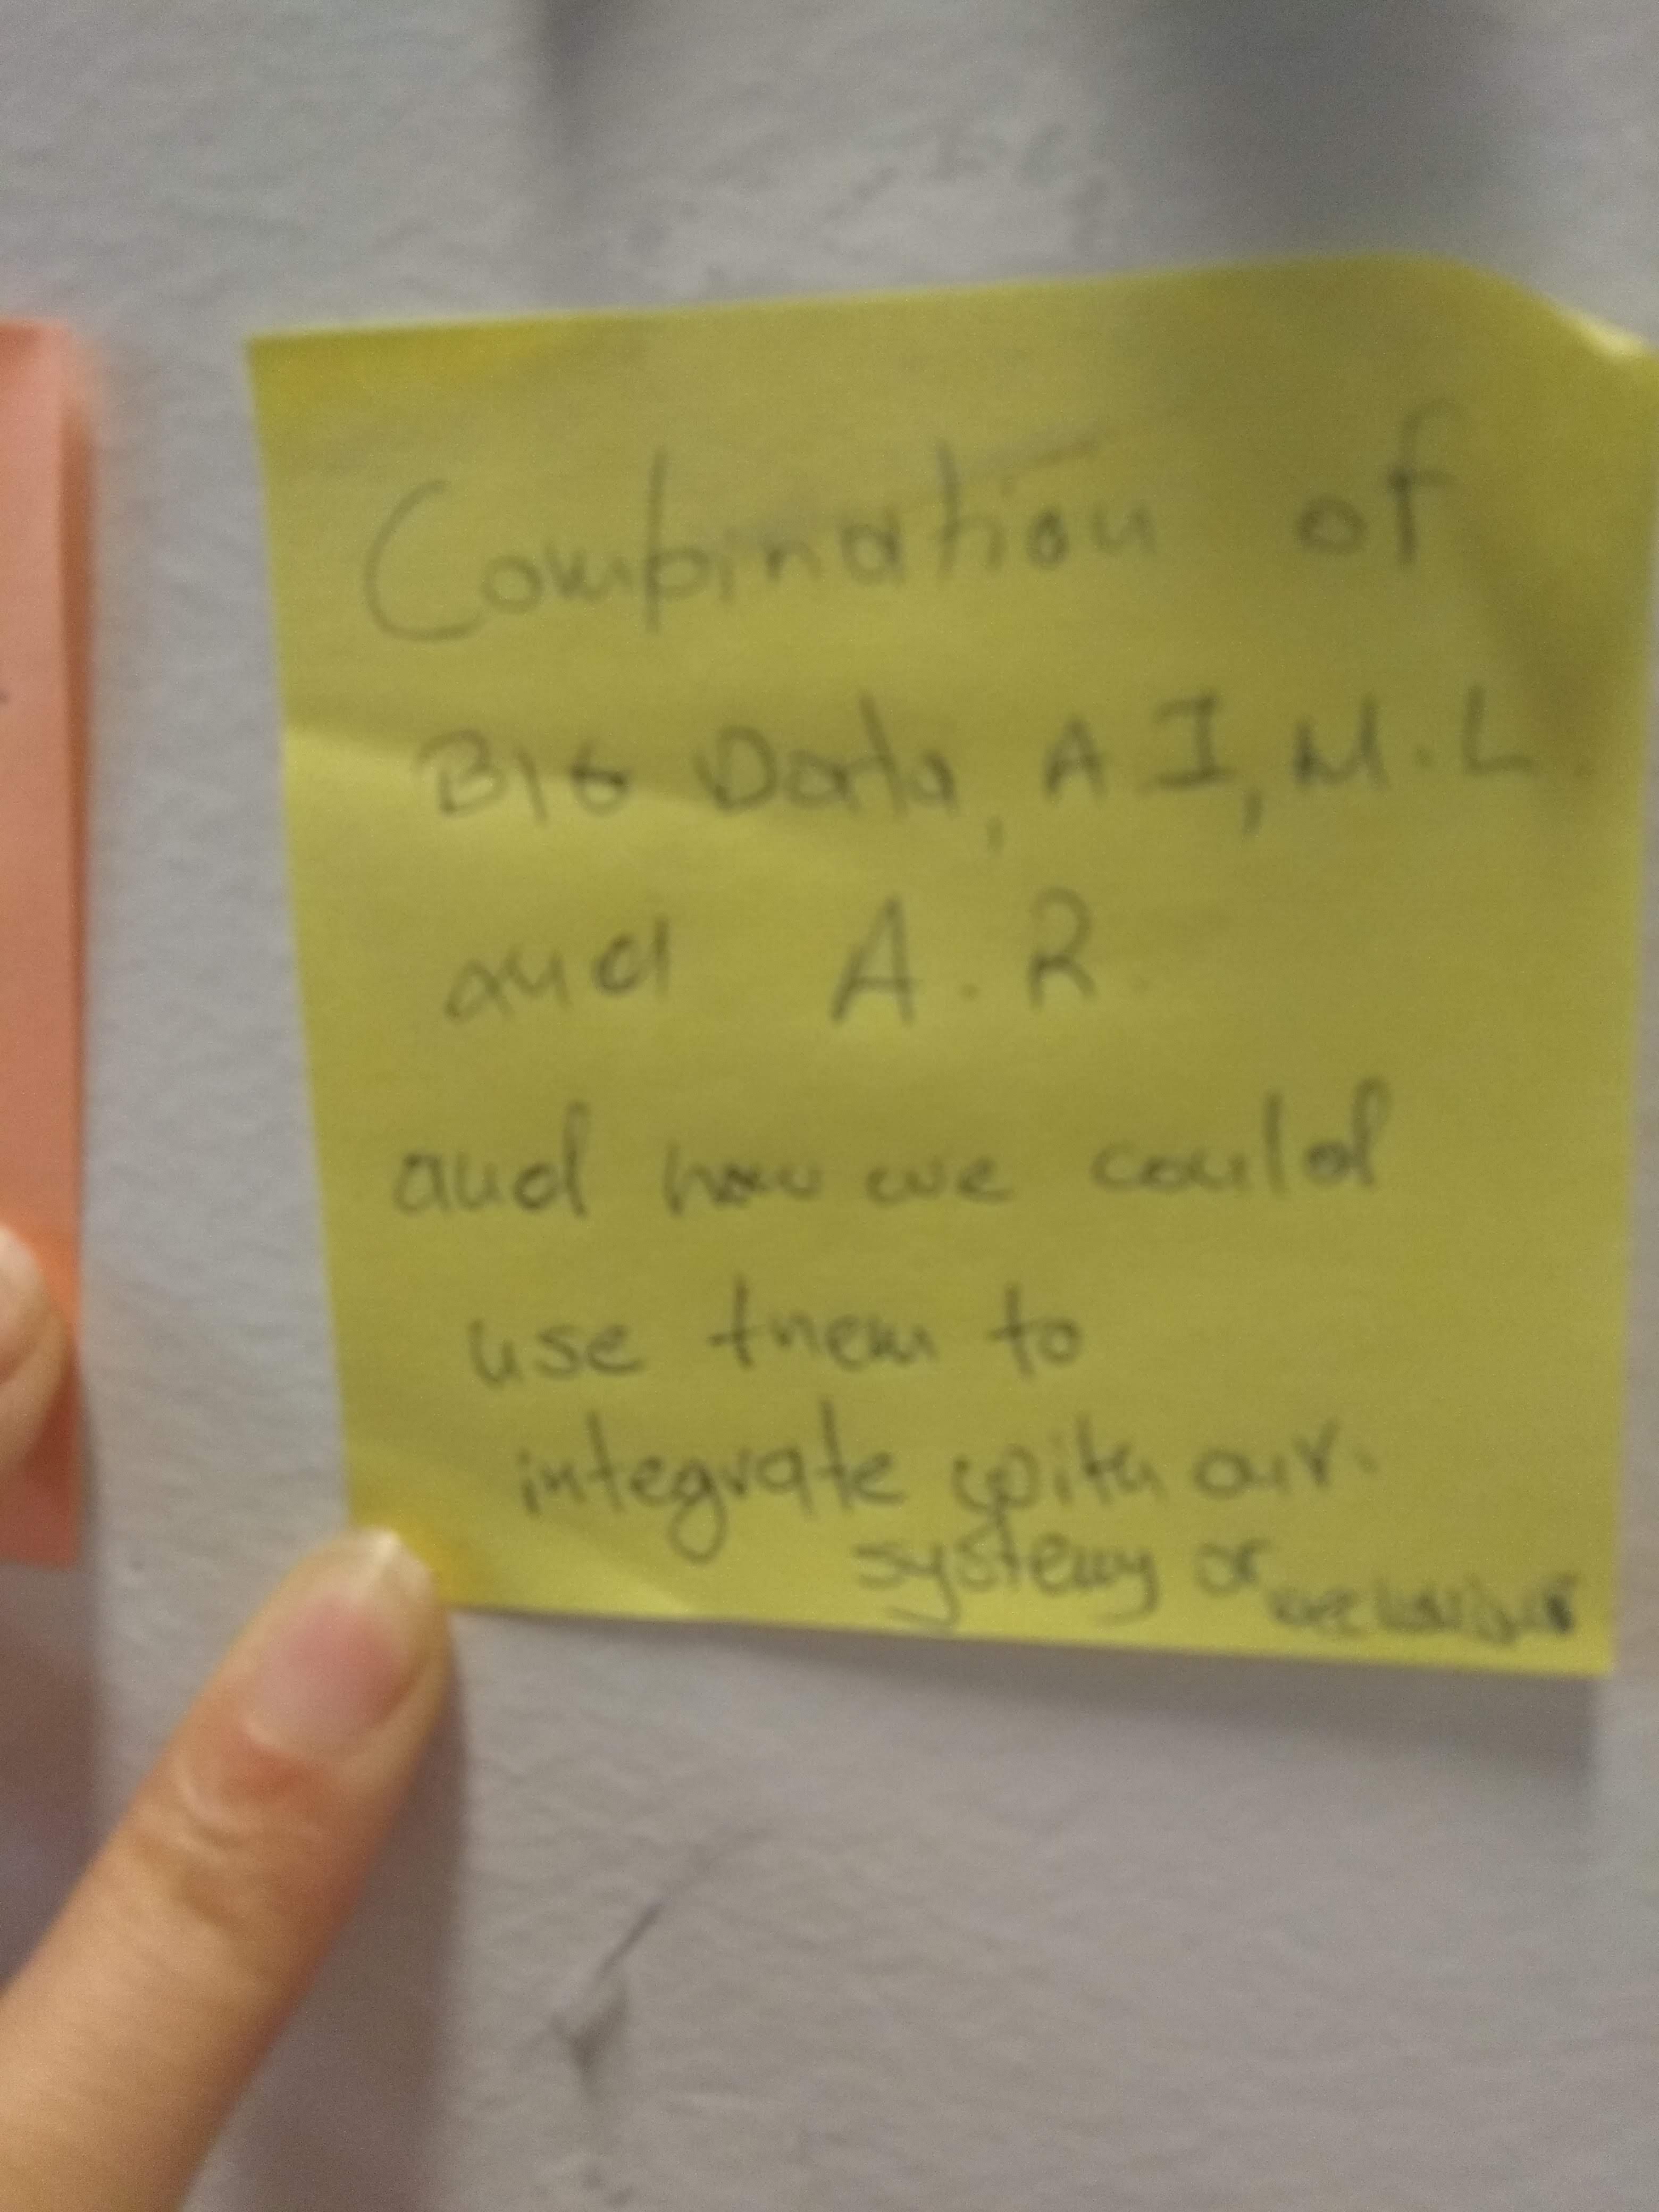 Combination of
BIG Data, A I, M.L.
and A.R.
and how we could
use them to
integrate with our
systems or